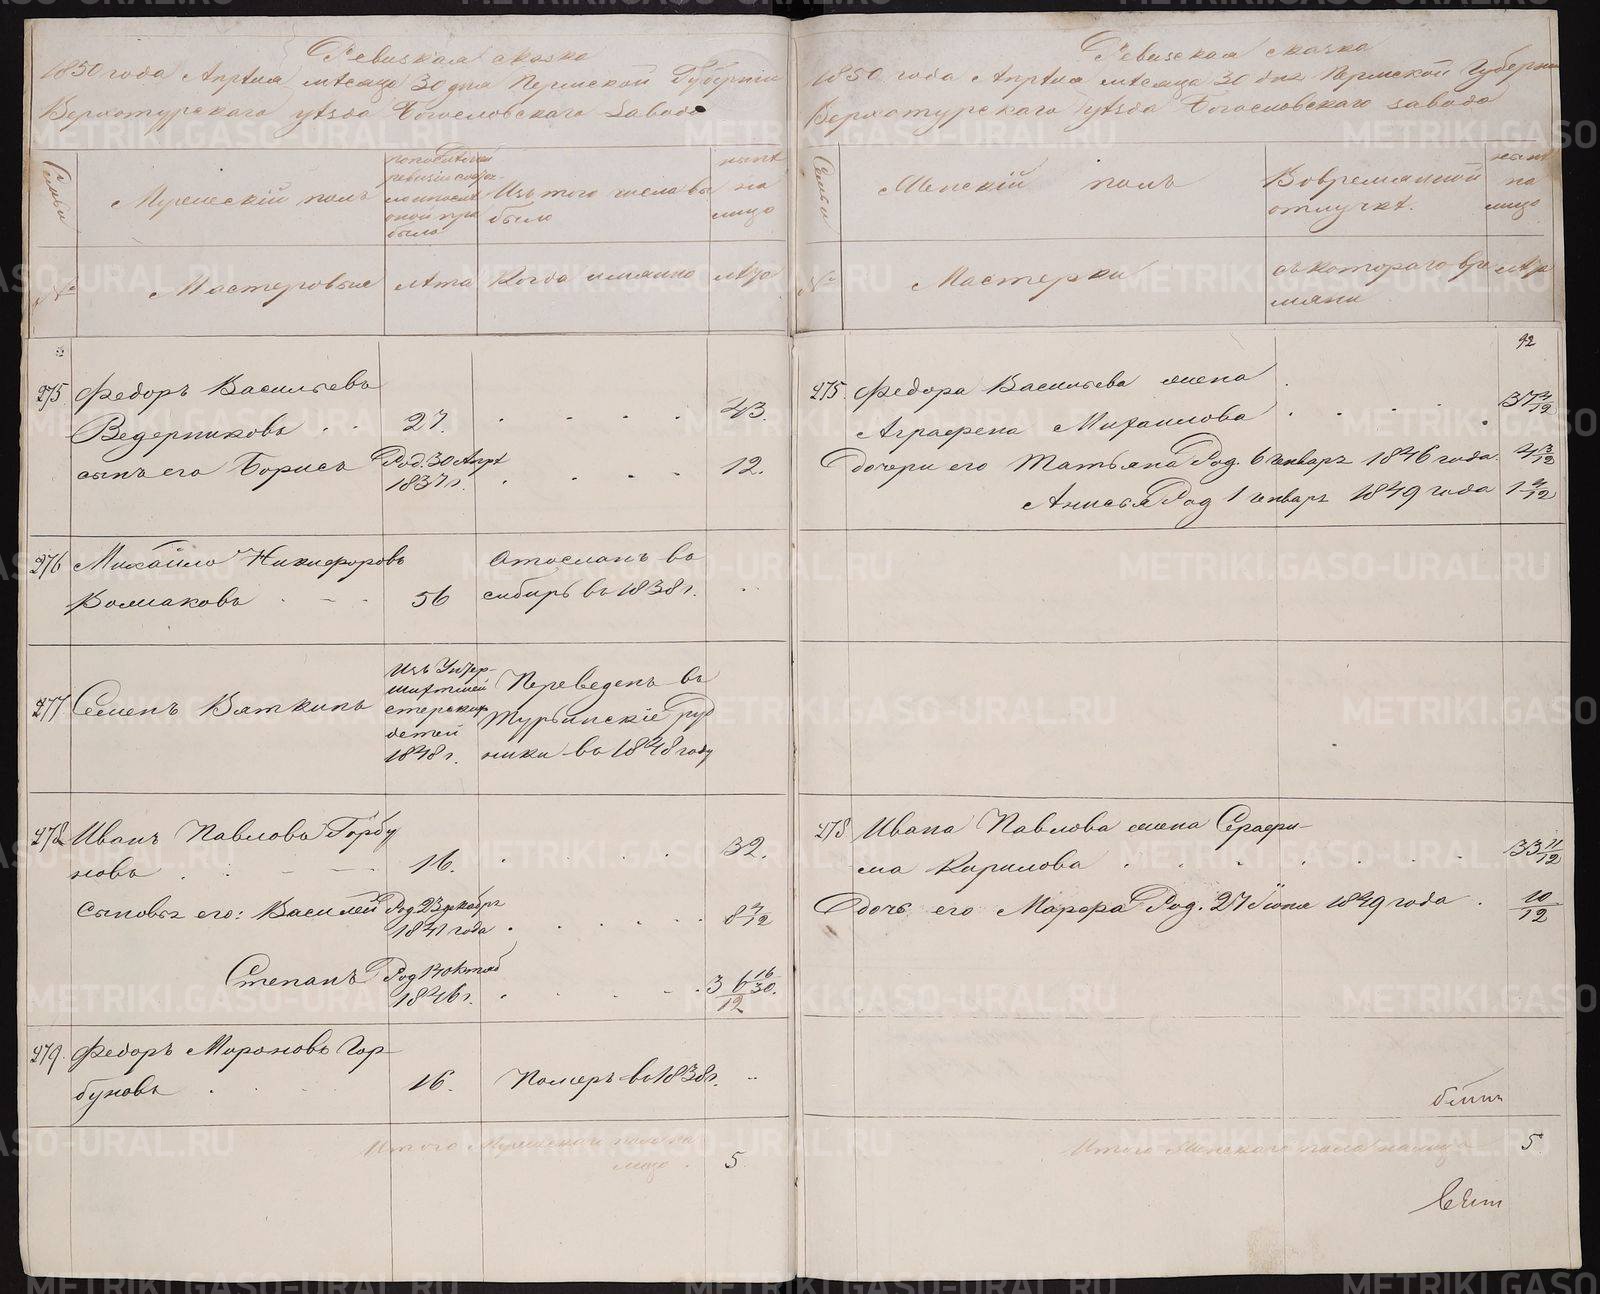 Ревизская сказка
1850 года Апрѣля мѣсяца 30 дня Пермской Губерніи
Верхотурскаго уѣзда Богословскаго завода
Семьи
Мужескій полъ
было
Изъ того числа вы
было
нынѣ
на
лицо
№
Мастеровые
лѣта
Когда имянно
лѣта
275
Федоръ Васильевъ
Ведерниковъ . . 27. . . . . 43.
сынъ его Борисъ Род. 30 Апр
1837 г. . . . . 12.
276
Михайло Никифоровъ
Колмаковъ . - - . 56
Отосланъ въ
сибирь въ 1838 г.
277
Семенъ Вяткинъ
Изъ Унтер-
шихтмей
стерских
детей
1848 г.
Переведенъ въ
Турьинскіе руд
ники въ 1848 году
278
Иванъ Павловъ Горбу
новъ 16. . . . . 32.
Сыновья его: Василей Род 23 декабря
1841 года . . . . . 8 4/12
Степанъ Род 14 октяб
1846 г. . . . . 3 6/12 16/30.
279.
Федоръ Мироновъ Гор-
буновъ 16. Померъ въ 1838 г.
Итого Мужескаго пола на
лицо . 5
Ревизская сказка
1850 года Апрѣля мѣсяца 30 дня Пермской Губерніи
Верхотурскаго уѣзда Богословскаго завода
Семьи
Женскій полъ
Во временной
отлучкѣ.
нынѣ
на
лицо
№
Мастерки
съ котораго вре
мяни
лѣта
92
275.
Федора Васильева жена
Аграфена Михаилова . . . . 37 4/12
Дочери его Татьяна Род. 6 генваря 1846 года 4 3/12
Анисья Род 1 генваря 1849 года 1 4/12
278
Ивана Павлова жена Серафи-
ма Кирилова . . . . . . 33 11/12
Дочь его Марфа Род. 27 Іюня 1849 года . 10/12
Итого Женскаго пола на лицо 5
METRIKI.GASO-URAL.RU